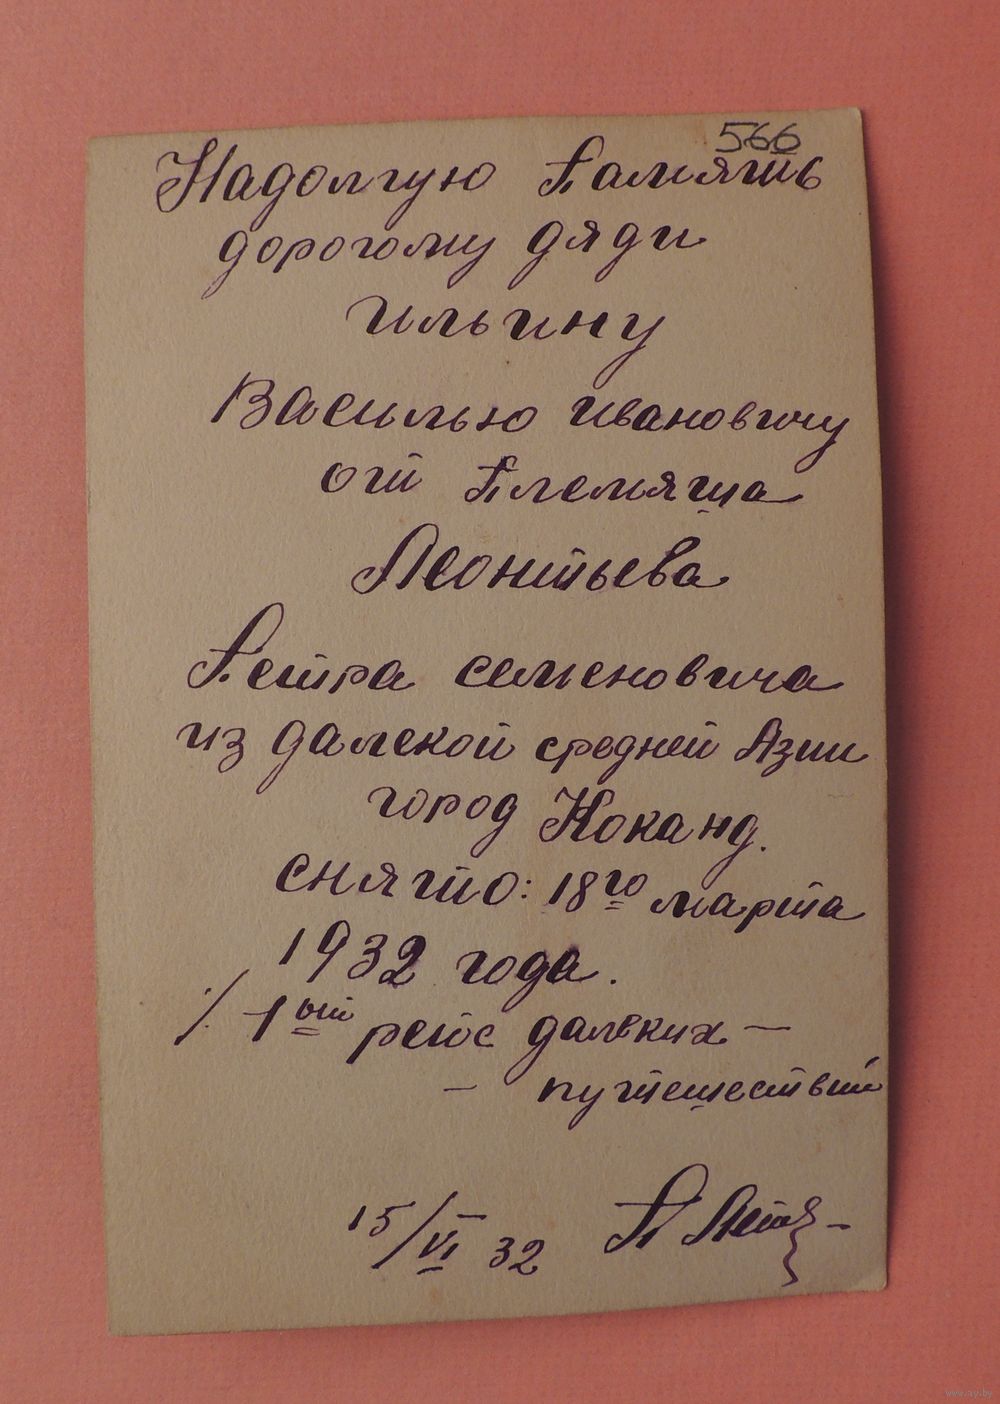 566
Надолгую Память
дорогому дяди
Ильину
Василью Ивановичу
от Племята
Леонтьева
Петра Семеновича
из далекой средней Азии
город Коканд.
снято: 18го марта
1932 года.
1ый рейс далеких —
— путешествий
15/VI 32 П
www.ay.by